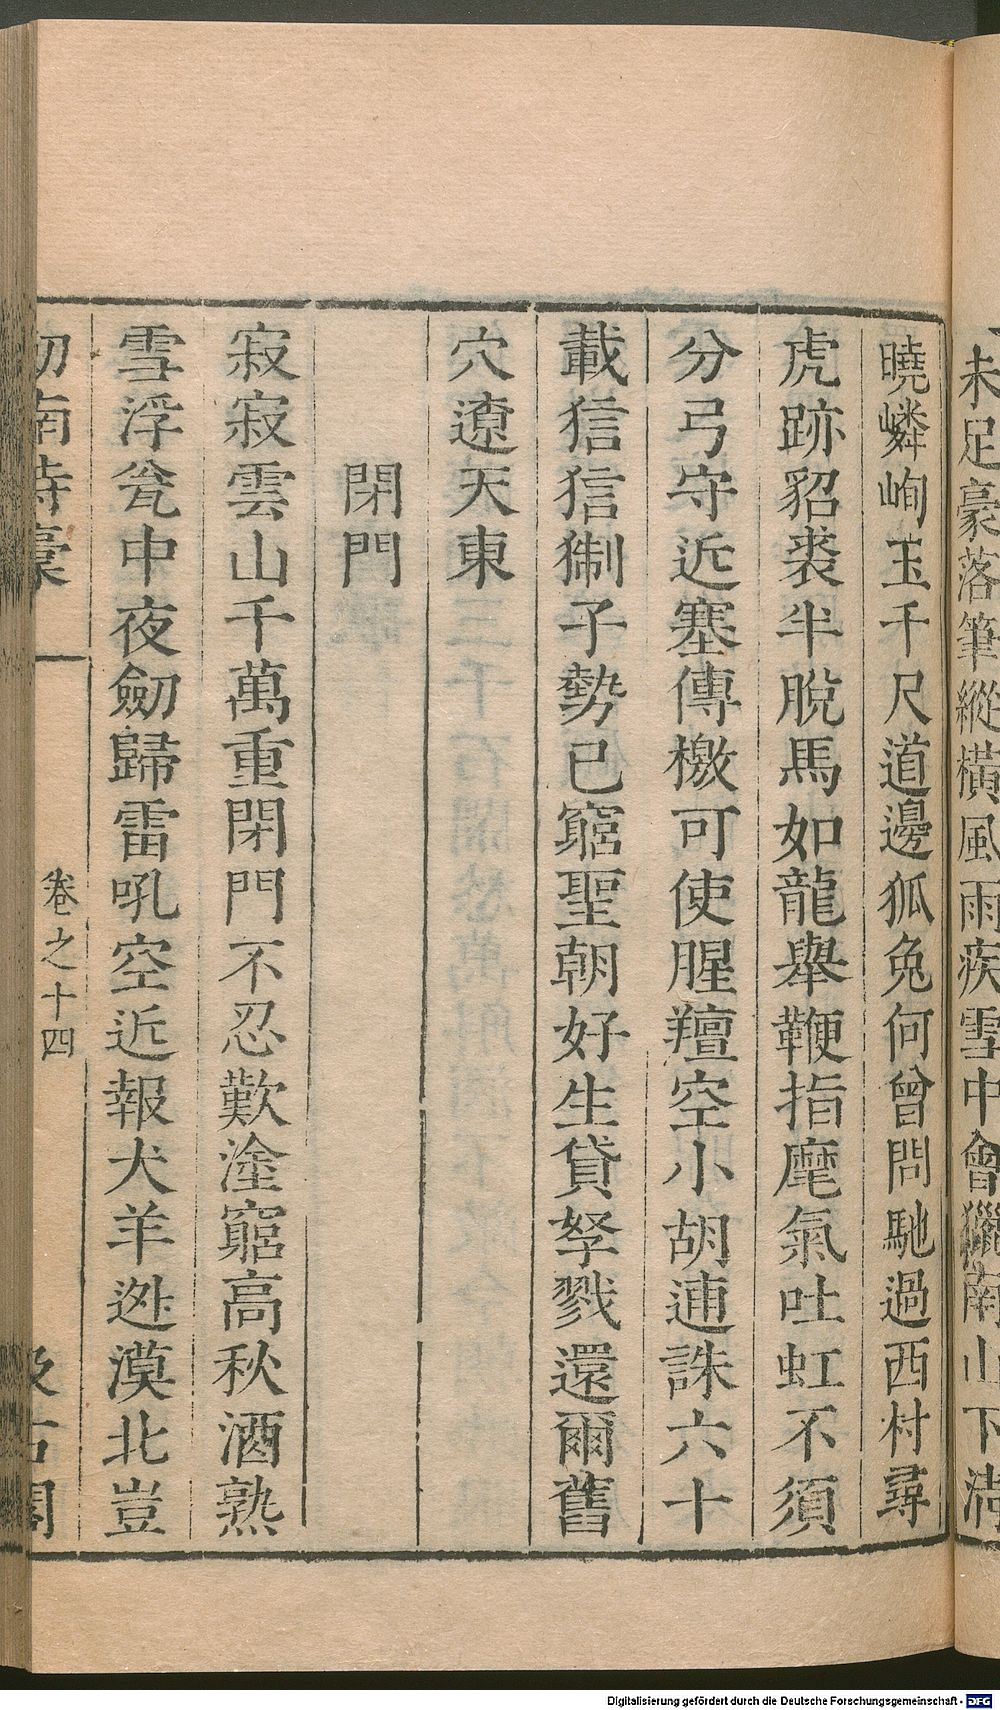 未足豪落筆縱橫風雨疾雪中會獵南山下清
曉嶙峋玉千尺道邊狐兔何曾問馳過西村尋
虎跡貂裘半脫馬如龍舉鞭指麾氣吐虹不須
分弓守近塞傳檄可使腥羶空小胡逋誅六十
載狺狺猘子勢已窮聖朝好生貸孥戮還爾舊
穴遼天東
閉門
寂寂雲山千萬重閉門不忍歎塗窮高秋酒熟
雪浮瓮中夜劒歸雷吼空近報犬羊逃漠北豈
劒南詩稾
卷之十四
汲古閣
Digitalisierung gefördert durch die Deutsche Forschungsgemeinschaft - DFG